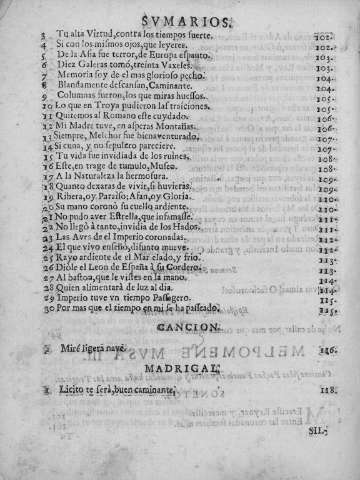 SVMARIOS.
3 Tu alta Virtud, contra los tiempos fuerte. 102.
4 Si con los mismos ojos, que leyeres. 102.
5 De la Asia fue terror, de Europa espanto. 103.
6 Diez Galeras tomó, treinta Vaxeles. 103.
7 Memoria soy de el mas glorioso pecho. 104.
8 Blandamente descansan, Caminante. 104.
9 Columnas fueron, los que miras huessos. 105.
10 Lo que en Troya pudieron las traiciones. 105.
11 Quitemos al Romano este cuydado. 106.
12 Mi Madre tuve, en asperas Montañas. 106.
13 Siempre, Melchor fue bienaventurado. 107.
14 Si cuna, y no sepulcro pareciere. 107.
15 Tu vida fue invidiada de los ruines. 108.
16 Este, en trage de tumulo, Museo. 108.
17 A la Naturaleza la hermosura. 109.
18 Quanto dexaras de vivir, si huvieras. 109.
19 Ribera, oy Paraiso; Afan, oy Gloria. 110.
20 Su mano coronó su cuello ardiente. 110.
21 No pudo aver Estrella, que infamasse. 111.
22 No llegò à tanto, invidia de los Hados. 111.
23 Las Aves de el Imperio coronadas. 112.
24 El que vivo enseñò, difunto mueve. 112.
25 Rayo ardiente de el Mar elado, y frio. 113.
26 Diòle el Leon de España à su Cordero. 113.
27 Al baston, que le vistes en la mano. 114.
28 Quien alimentarà de luz al dia. 114.
29 Imperio tuve un tiempo Passagero. 115.
30 Por mas que el tiempo en mi se ha passado. 115.
CANCION.
1 Mirè ligera nave. 116.
MADRIGAL.
1 Licito te serà, buen caminante. 118.
SIL-